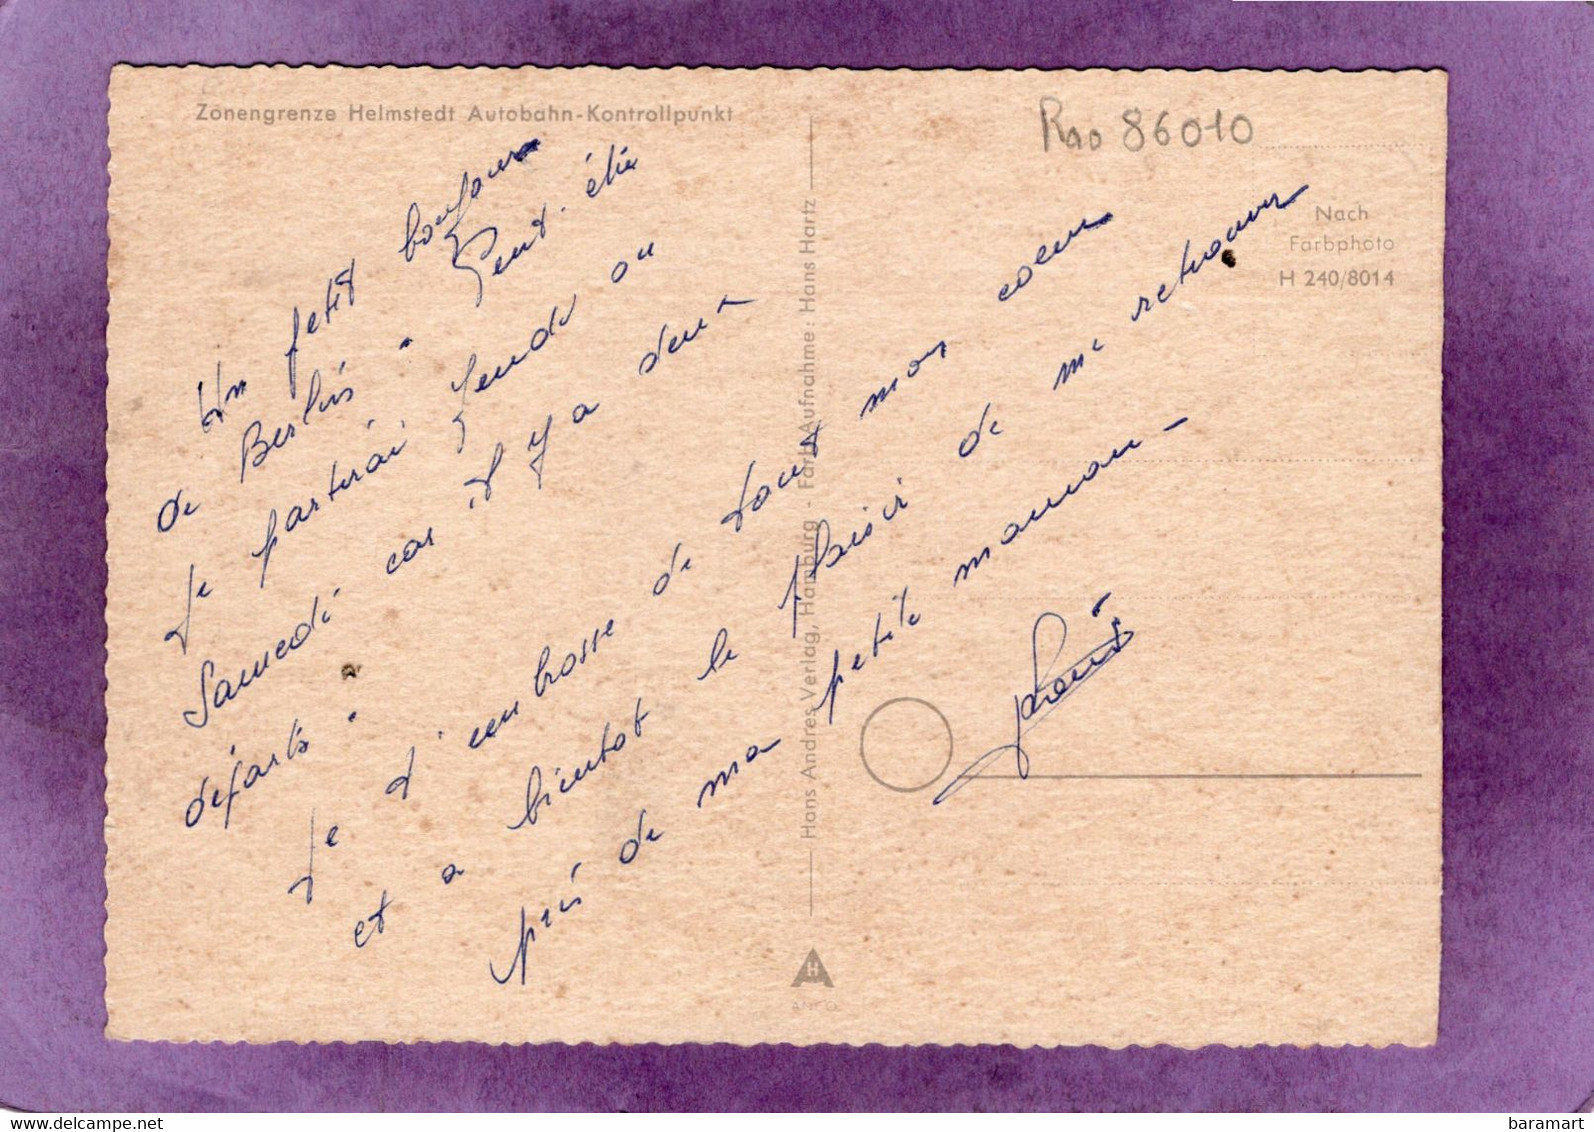 Zonengrenze Helmstedt Autobahn-Kontrollpunkt
Un petit bonjour
de Berlin. Peut-être
Je partirai Jeudi ou
Samedi car il y a deux
départs.
Je t'embrasse de tout mon coeur
et a bientot le plaisir de me retrouver
près de ma petite maman-
Hans Andres Verlag, Hamburg · Farb-Aufnahme: Hans Hartz
86010
Nach
Farbphoto
H 240/8014
H
ANDO
www.delcampe.net
baramart